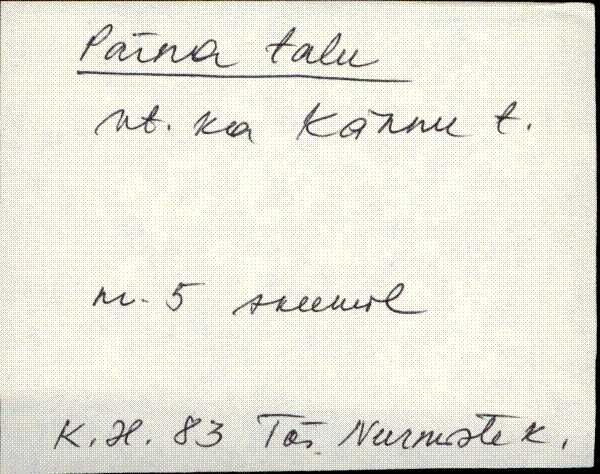 Päina talu
vt. ka Kännu t.
nr. 5 skeemil
K.H. 83 Tõs Nurmiste k.